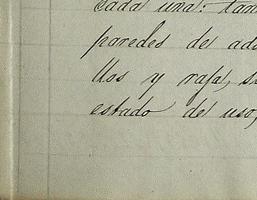 cada una: tam
paredes de ado
llos y rafa, su
estado de uso,